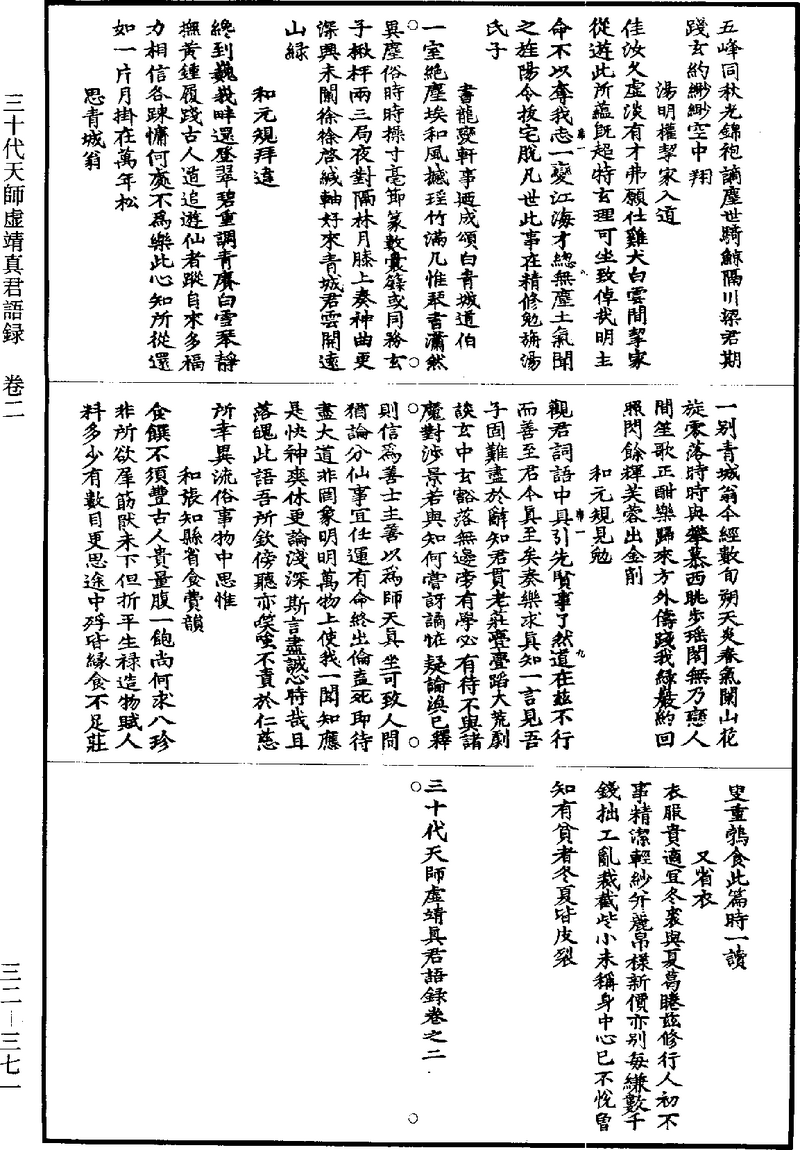 三十代天師虛靖真君語録 卷二
三二—三七一
五峰同秋光錦袍謫塵世騎鯨隔川梁君期
踐玄約緲緲空中翔
湯明權挈家入道
佳汝久虛淡有才弗願仕雞犬白雲間挈家
從遊此所蘊旣超特玄理可坐致倬哉明主
命不以奪我志一變江海才總無塵土氣聞
之旌陽令拔宅脫凡世此事在精修勉旃湯
氏子
書龍變軒事迺成頌白青城道伯
一室絶塵埃和風撼瑶竹滿几惟琴書瀟然
異塵俗時時操寸毫節篆數囊籙或同務玄
子楸枰兩三局夜對隔林月膝上奏神曲更
深興未闌徐徐啓緘軸好來青城君雲開遠
山緑
和元規拜違
終到巍峩畔還登翠碧重調青賡白雪琴靜
撫黄鍾履踐古人造追遊仙者蹤自來多福
力相信各踈慵何處不爲樂此心知所從還
如一片月掛在萬年松
思青城翁
一别青城翁今經數旬朔天炎春氣闌山花
旋零落時時與攀慕西眺步瑶閣無乃戀人
間笙歌正酣樂歸來方外儔踐我緑巖約回
照閃餘輝芙蓉出金削
和元規見勉
觀君詞語中具引先賢事了然道在兹不行
而善至君今真至矣奏樂求真知一言見吾
子固難盡於辭知君貫老莊亹亹蹈大荒劇
談玄中玄豁落無邊旁有學必有待不與諸
魔對涉景若與知何嘗訝謫恠疑論渙已釋
則信爲善士主善以爲師天真坐可致人間
猶論分仙事宜任運有命終出倫盍死即待
盡大道非罔象明明萬物上使我一聞知應
是快神爽休更論淺深斯言盡誠心時哉且
落魄此語吾所欽傍聽亦唉嗤不責於仁慈
所幸異流俗事物中思惟
和張知縣省食費韻
食饌不須豐古人貴量腹一飽尚何求八珍
非所欲犀筯厭未下但折平生禄造物賦人
料多少有數目更思途中殍皆緣食不足莊
叟重鶉食此篇時一讀
又省衣
衣服貴適宜冬裘與夏葛睠兹修行人初不
事精潔輕紗并麗帛樣新價亦别每縑數千
錢拙工亂裁截些小未稱身中心已不悅曾
知有貧者冬夏皆皮裂
三十代天師虛靖真君語録卷之二